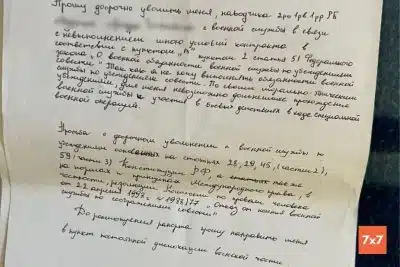 Прошу досрочно уволить меня, наводчика 2 ро 1 рв 1 рр РБ
с военной службы в связи
с невыполнением мною условий контракта в
соответствии с пунктом "А" пунктом 2 статьи 51 Федерального
закона "О военной обязанности военной службы по убеждениям
совести". Так как я не хочу выполнять обязанности военной
службы по убеждениям совести. По своим морально-этическим
убеждениям, для меня невозможно дальнейшее прохождение
военной службы и участия в боевых действиях в ходе специальной
военной операции.
Просьба о досрочном увольнении с военной службы по
убеждениям на статьях 28, 29, 45, (части 2),
59 (части 3) Конституции РФ, а также
на нормах и принципах Международного права, в
частности, резолюции по правам человека
от 22 апреля 1998 № 1998/77 "Отказ от военной
службы по соображениям совести".
До рассмотрения рапорта прошу направить меня
в пункт постоянной дислокации военной части.
7×7